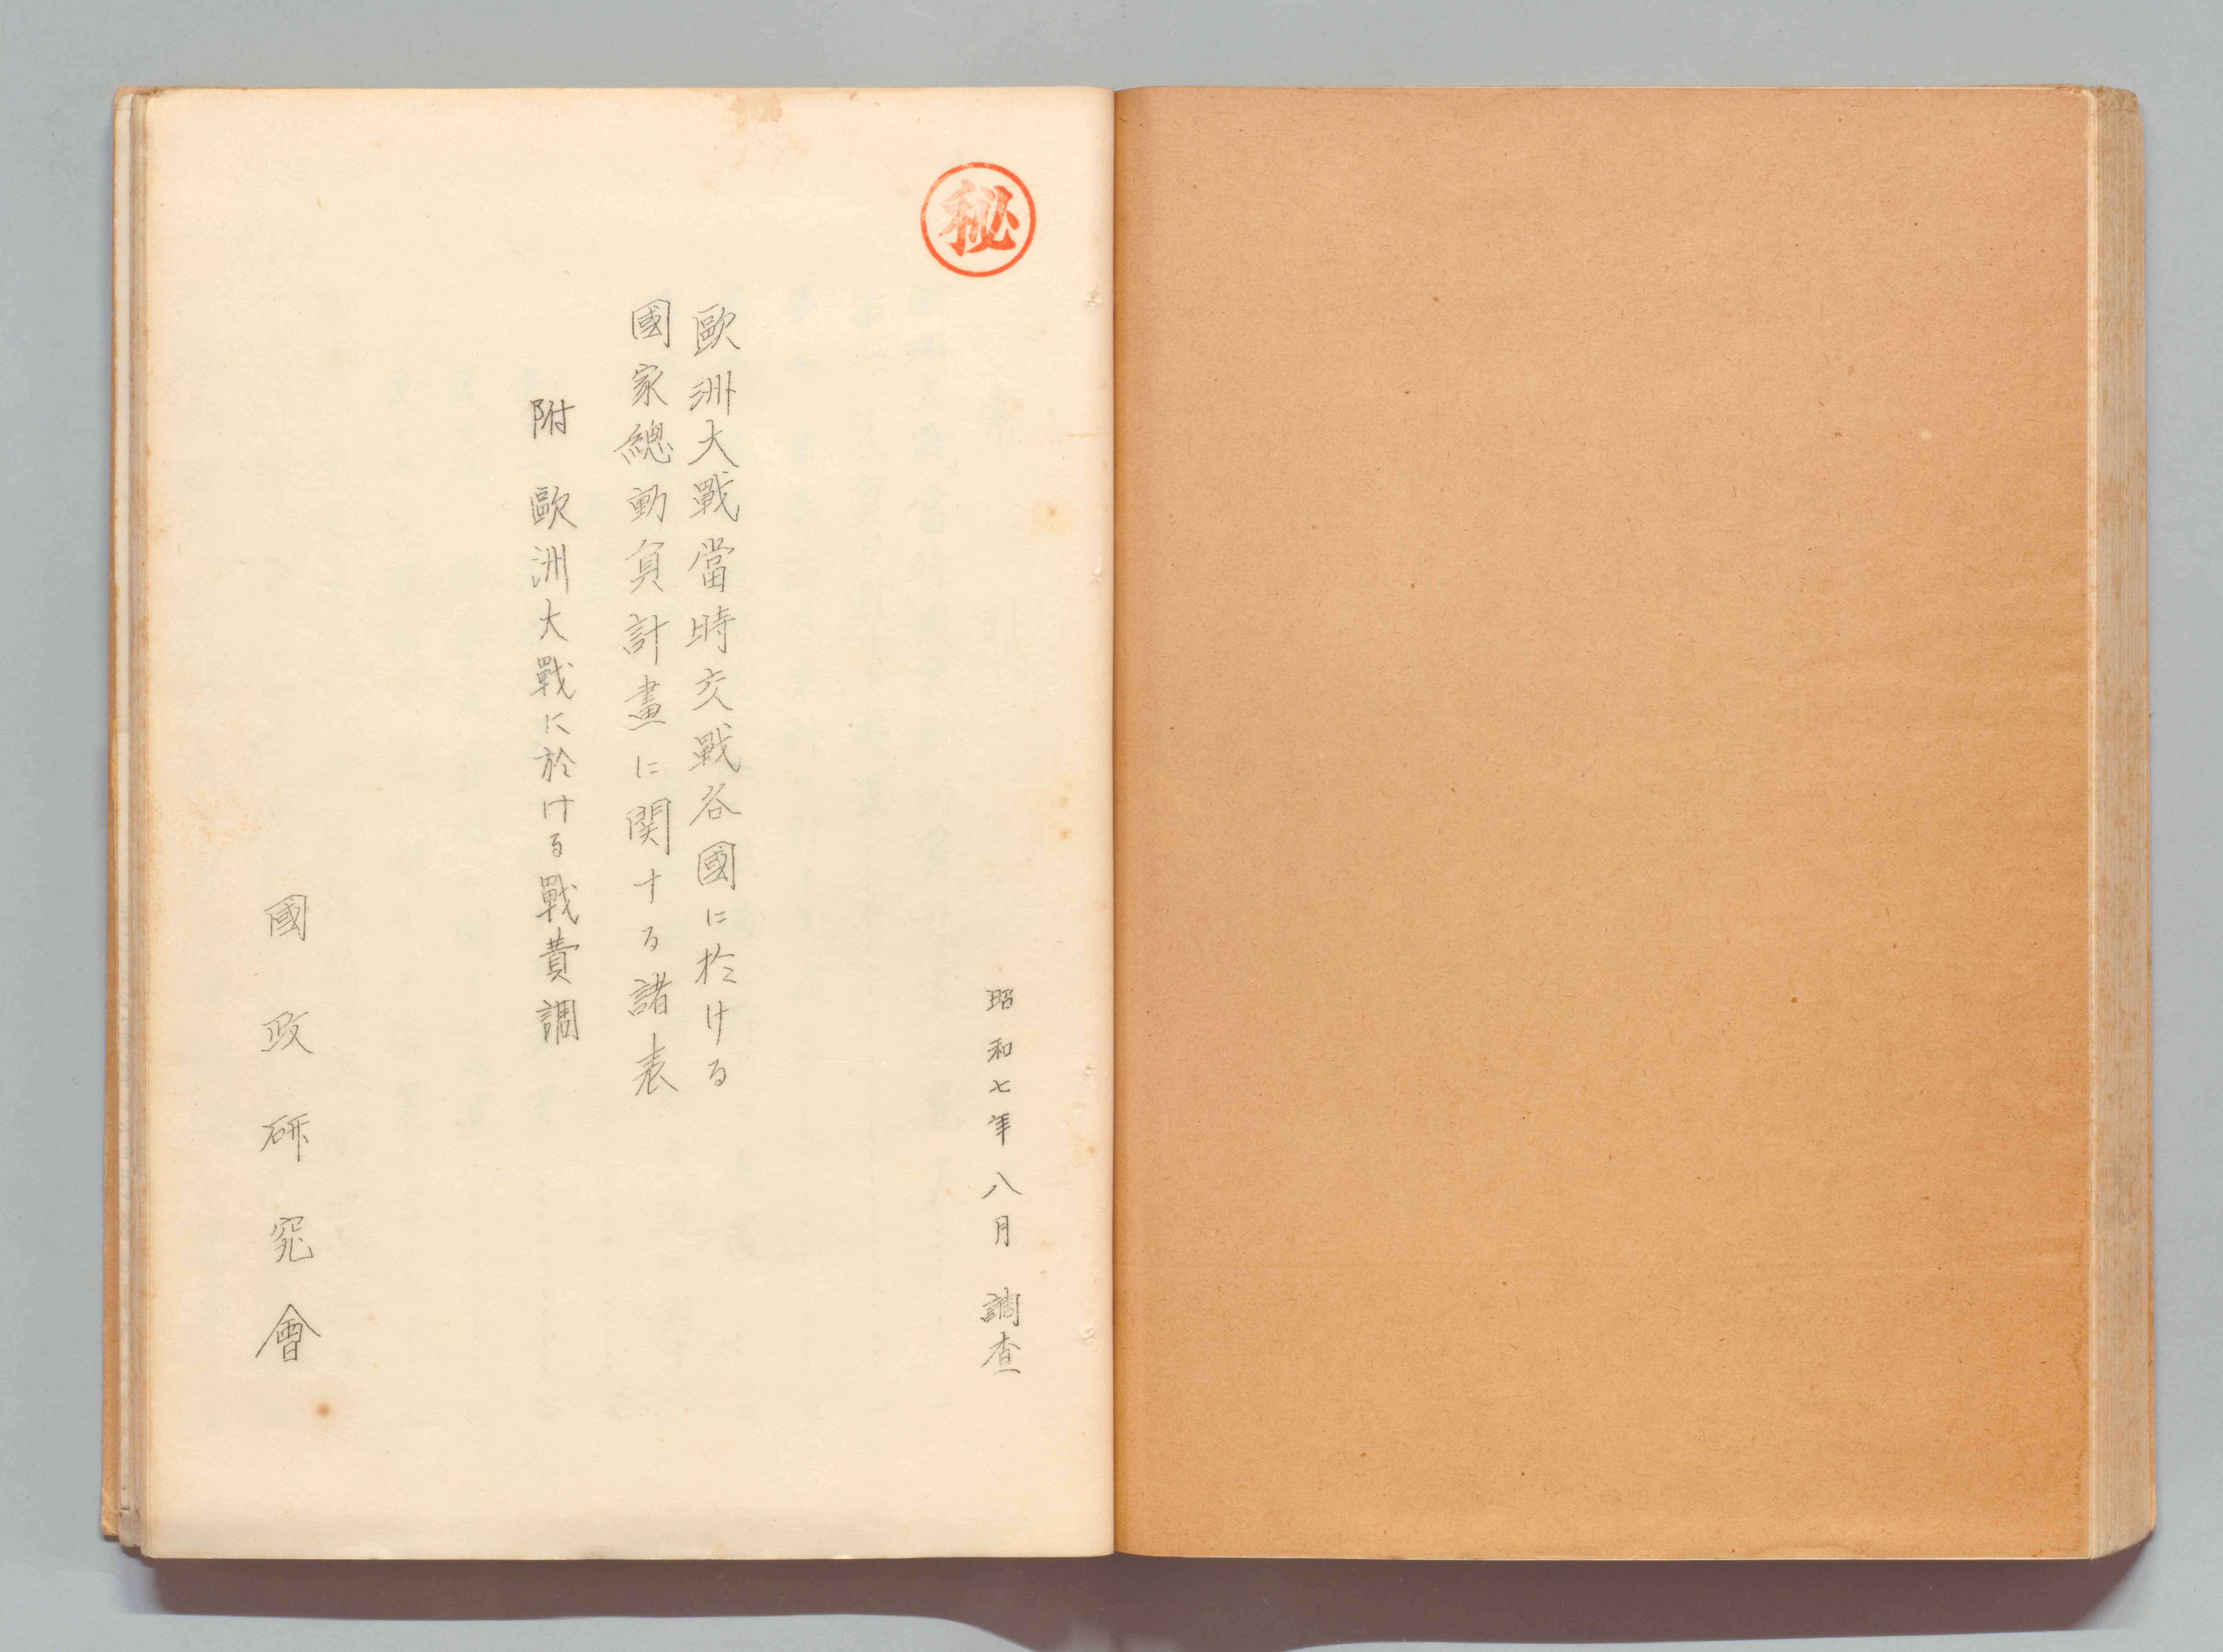 秘
昭和七年八月調査
歐洲大戰當時交戰各國に於ける
國家總動員計畫に関する諸表
附 歐洲大戰に於ける戰費調
國政研究會